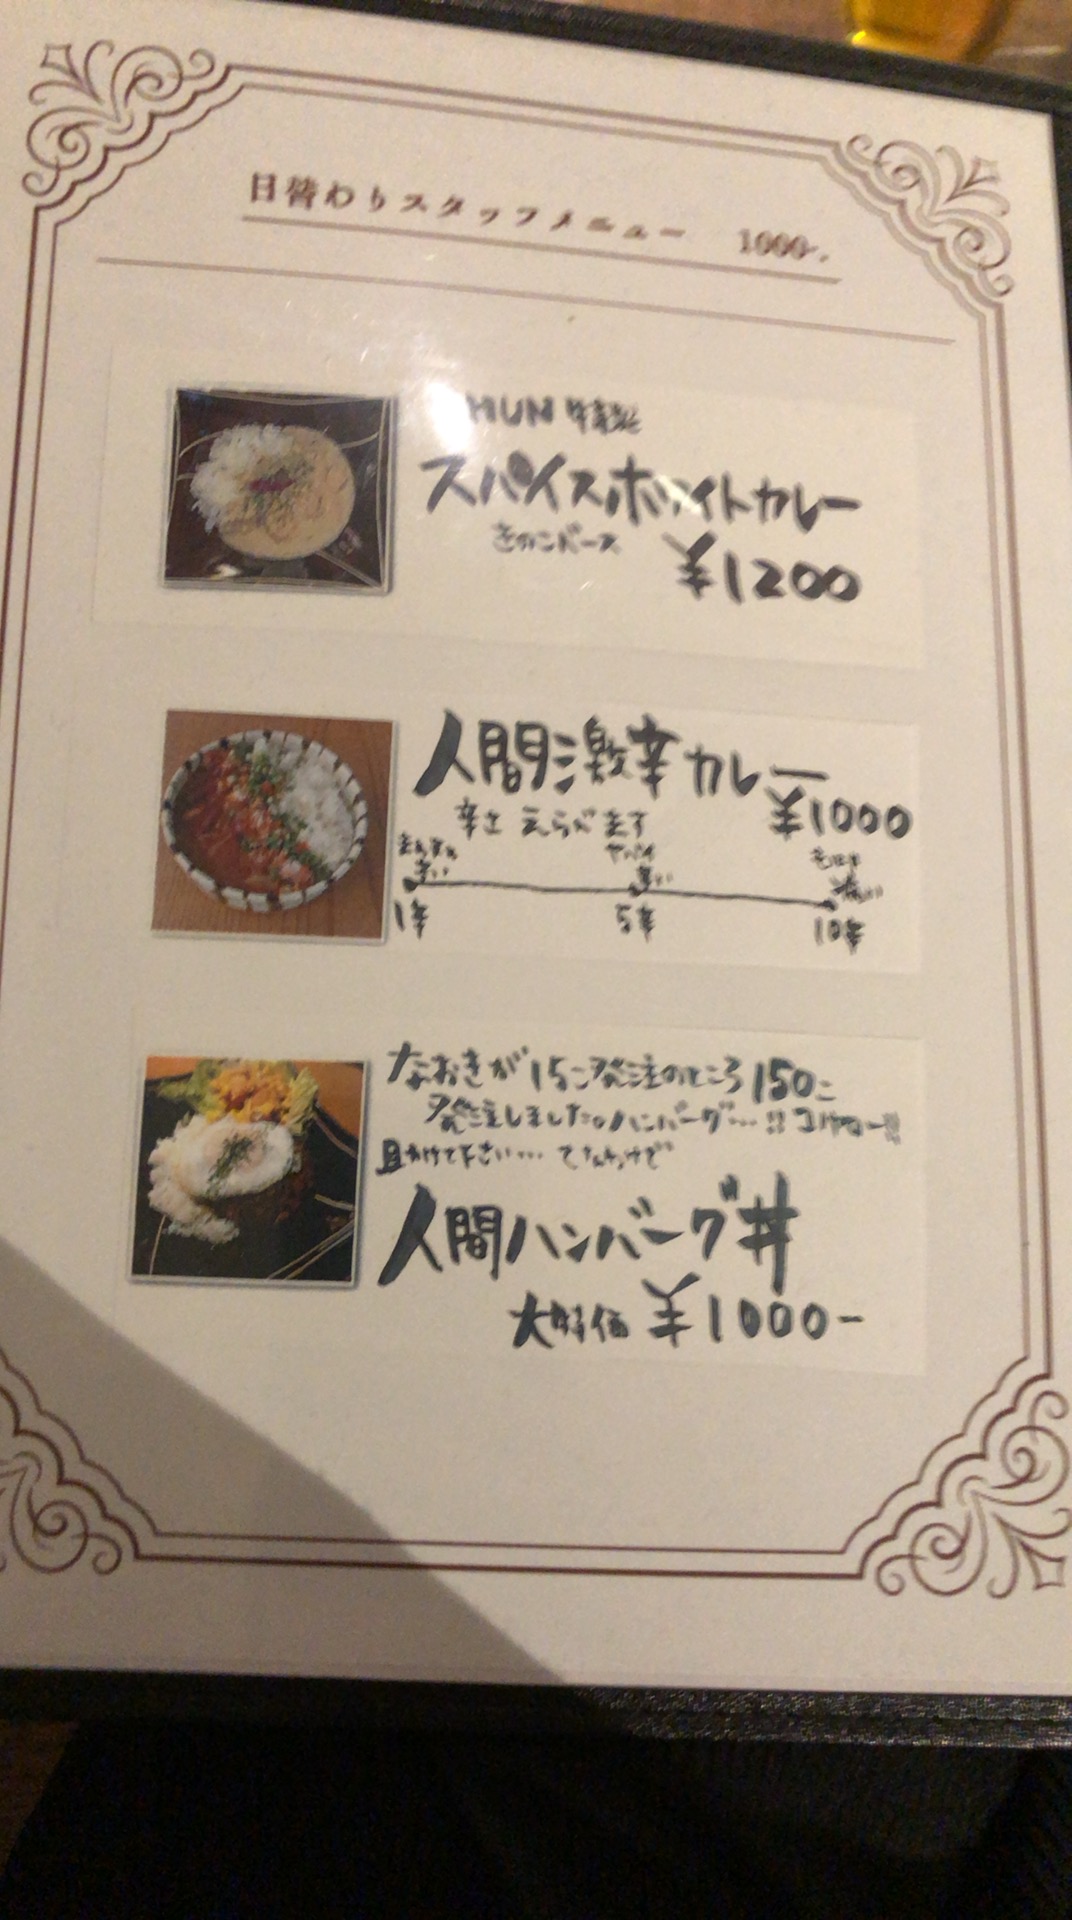 日替わりスタッフメニュー 1000-.
HUN 特製
スパイスホワイトカレー
きのこベース ¥1200
人間激辛カレー
¥1000
辛さ えらべます
ヤバイ
1辛 5辛 10辛
なおきが15こ発注のところ150こ
発注しました。ハンバーグ…!! コノヤロー!!
助けて下さい… てなわけで
人間ハンバーグ丼
大特価 ¥1000-